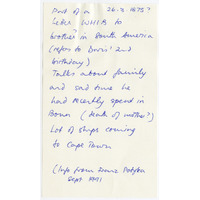 Part of a 26.2.1875?
letter WHIB to
brother? in South America
(refers to Doris' 2nd
birthday)
Talks about family
and sad time he
had recently spend in
(Death of mother?)
Lot of ships coming
to Cape Town
(Info from
Sept 1991